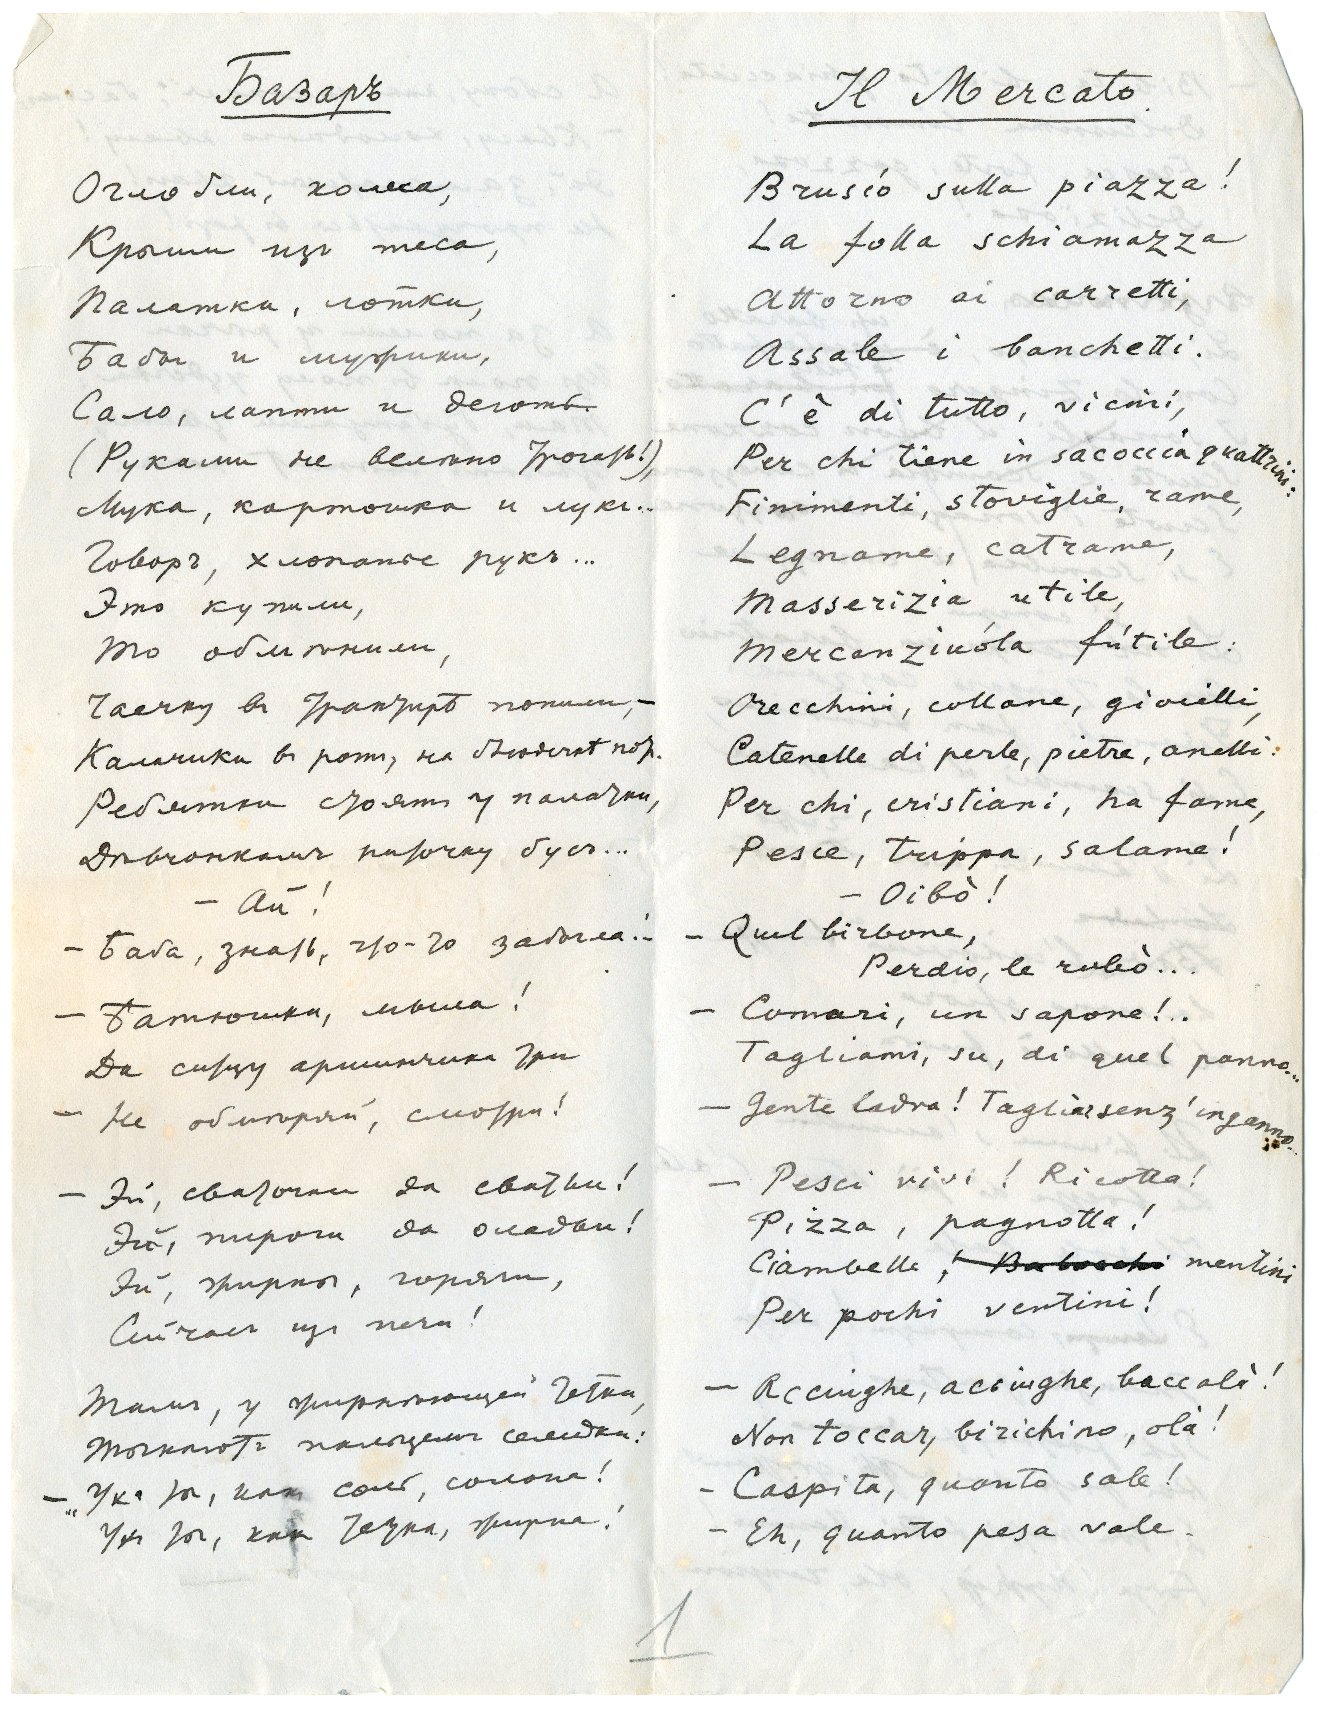 Базаръ
Оглобли, колеса,
Крыши изъ теса,
Палатки, лотки,
Бабы и мужики,
Сало, лапти и деготь
(Руками не велѣно трогать!),
Мука, картошка и лукъ..
Говоръ, хлопанье рукъ...
Это купили,
То обмѣнили,
Чаечку въ трактирѣ попили,–
Калачики въ ротъ, на блюдечкѣ
Ребятки стоятъ у палатки,
Дѣвчонкамъ ниточку бусъ...
– Ай!
– Баба, знать, что-то забыла!–
– Батюшки, мыла!
Да ситцу аршинчика три
– Не обмѣряй, смотри!
– Эй, сваточки да сватьи!
Эй, пироги да оладьи!
Эй, жирны, горячи,
Сейчасъ изъ печи!
Тамъ, у жирнѣющей тетки,
Тыкаютъ пальцемъ селедки:
– "Ужъ ты, какъ соль, солона!
Ужъ ты, какъ тетка, жирна!
Il Mercato
Brusío sulla piazza!
La folla schiamazza
Attorno ai carretti,
Assale i banchetti.
C'è di tutto, vicini,
Per chi tiene in sacoccia quattrini:
Finimenti, stoviglie, rame,
Legname, catrame,
Masserizia utile,
Mercanziuóla fútile:
Orecchini, collane, gioielli,
Catenelle di perle, pietre, anelli:
Per chi, cristiani, ha fame,
Pesce, trippa, salame!
– Oibò!
– Quel birbone,
Perdio, le rubò...
– Comari, un sapone!..
Tagliami, su, di quel panno...
– Gente ladra! Tagliar senz'inganno...
– Pesci vivi! Ricotta!
Pizza, pagnotta!
Ciambelle, mentini
Per pochi ventini!
– Acciughe, acciughe, baccalà!
Non toccar, birichino, olà!
– Caspita, quanto sale!
– Eh, quanto pesa vale.
1